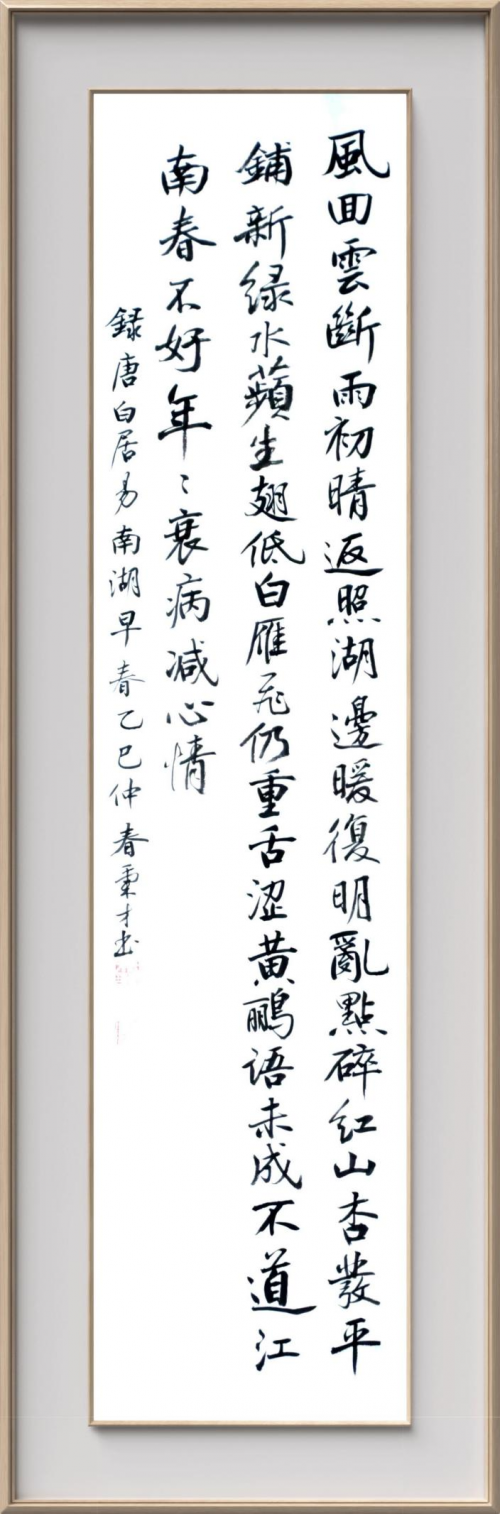 風回雲斷雨初晴返照湖邊暖復明亂點碎紅山杏發平
鋪新緑水蘋生翅低白雁飛仍重舌澀黄鸝语未成不道江
南春不好年〻衰病减心情
録唐白居易南湖早春乙巳仲春秉才书